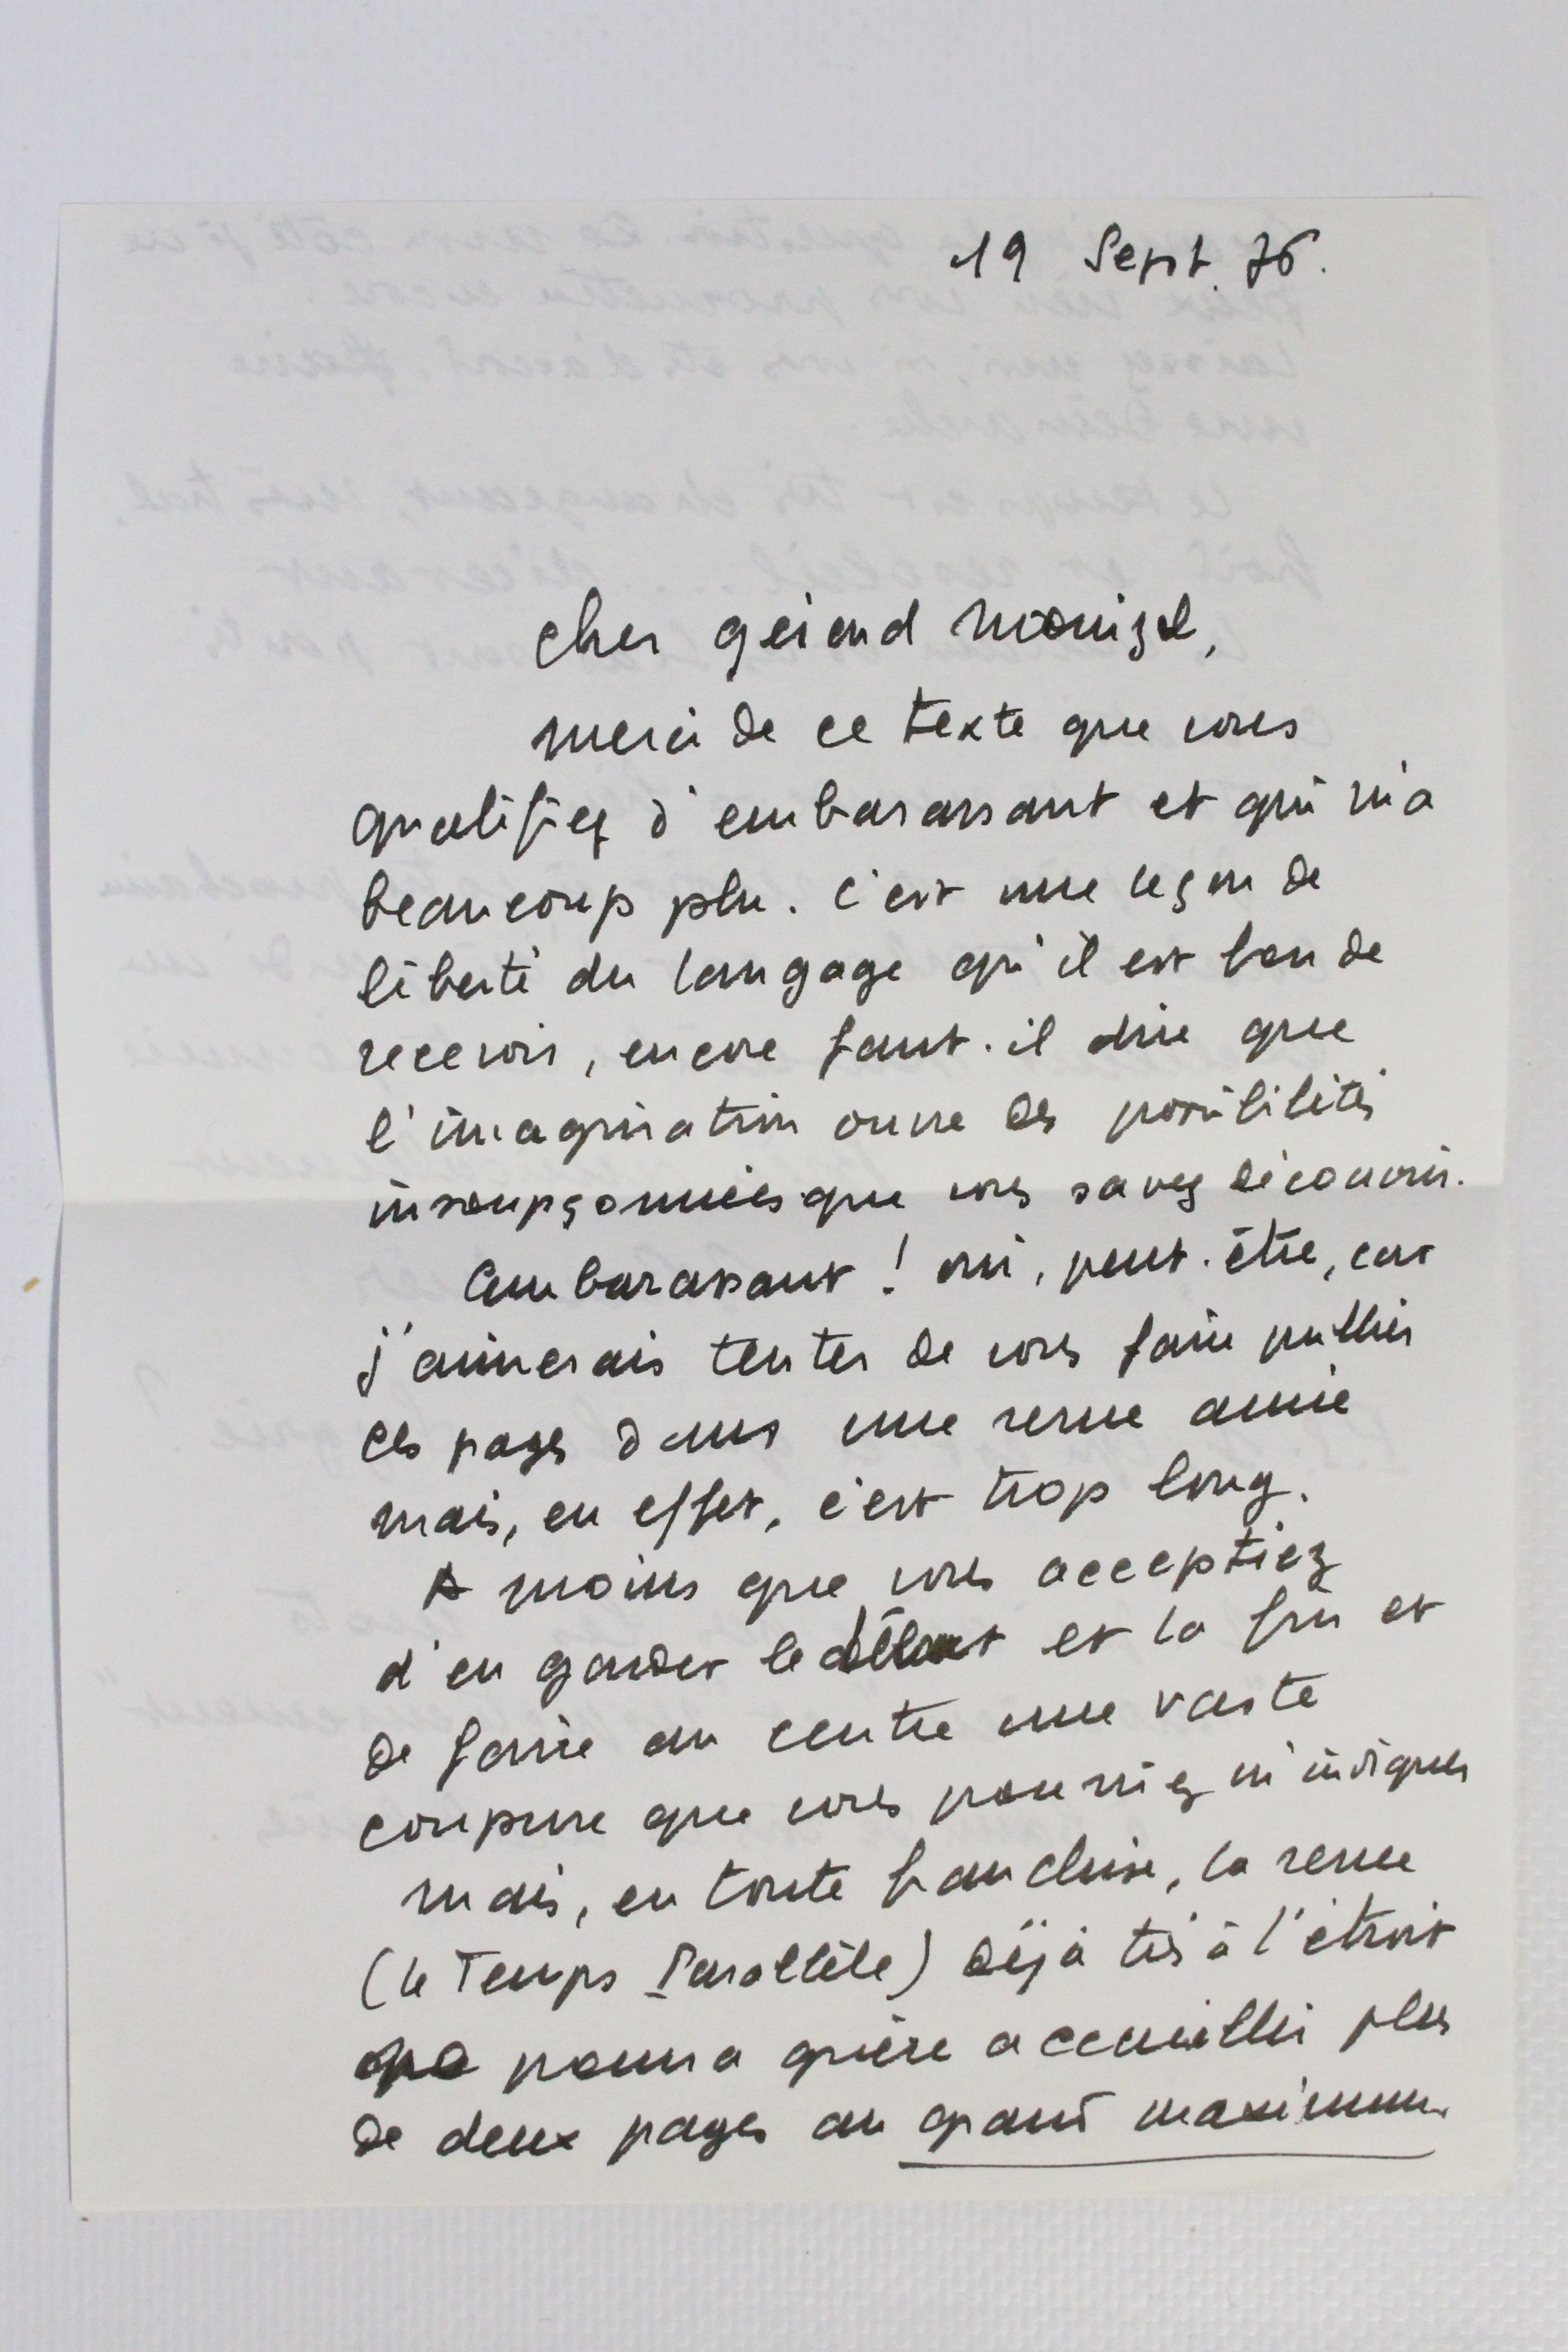 19 Sept. 76.
Cher Gérard Mourgue,
merci de ce texte que vous
qualifiez d'embarassant et qui m'a
beaucoup plu. C'est une leçon de
liberté du langage qu'il est bon de
recevoir, encore faut-il dire que
l'imagination ouvre des possibilités
insoupçonnées que vous savez découvrir.
Embarassant ! oui, peut-être, car
j'aimerais tenter de vous faire publier
ces pages dans une revue amie
mais, en effet, c'est trop long.
A moins que vous acceptiez
d'en garder le début et la fin et
de faire au centre une vaste
coupure que vous pourriez m'indiquer
mais, en toute franchise, la revue
(le Temps Parallèle) déjà très à l'étroit
pourra guère accueillir plus
de deux pages au grand maximum